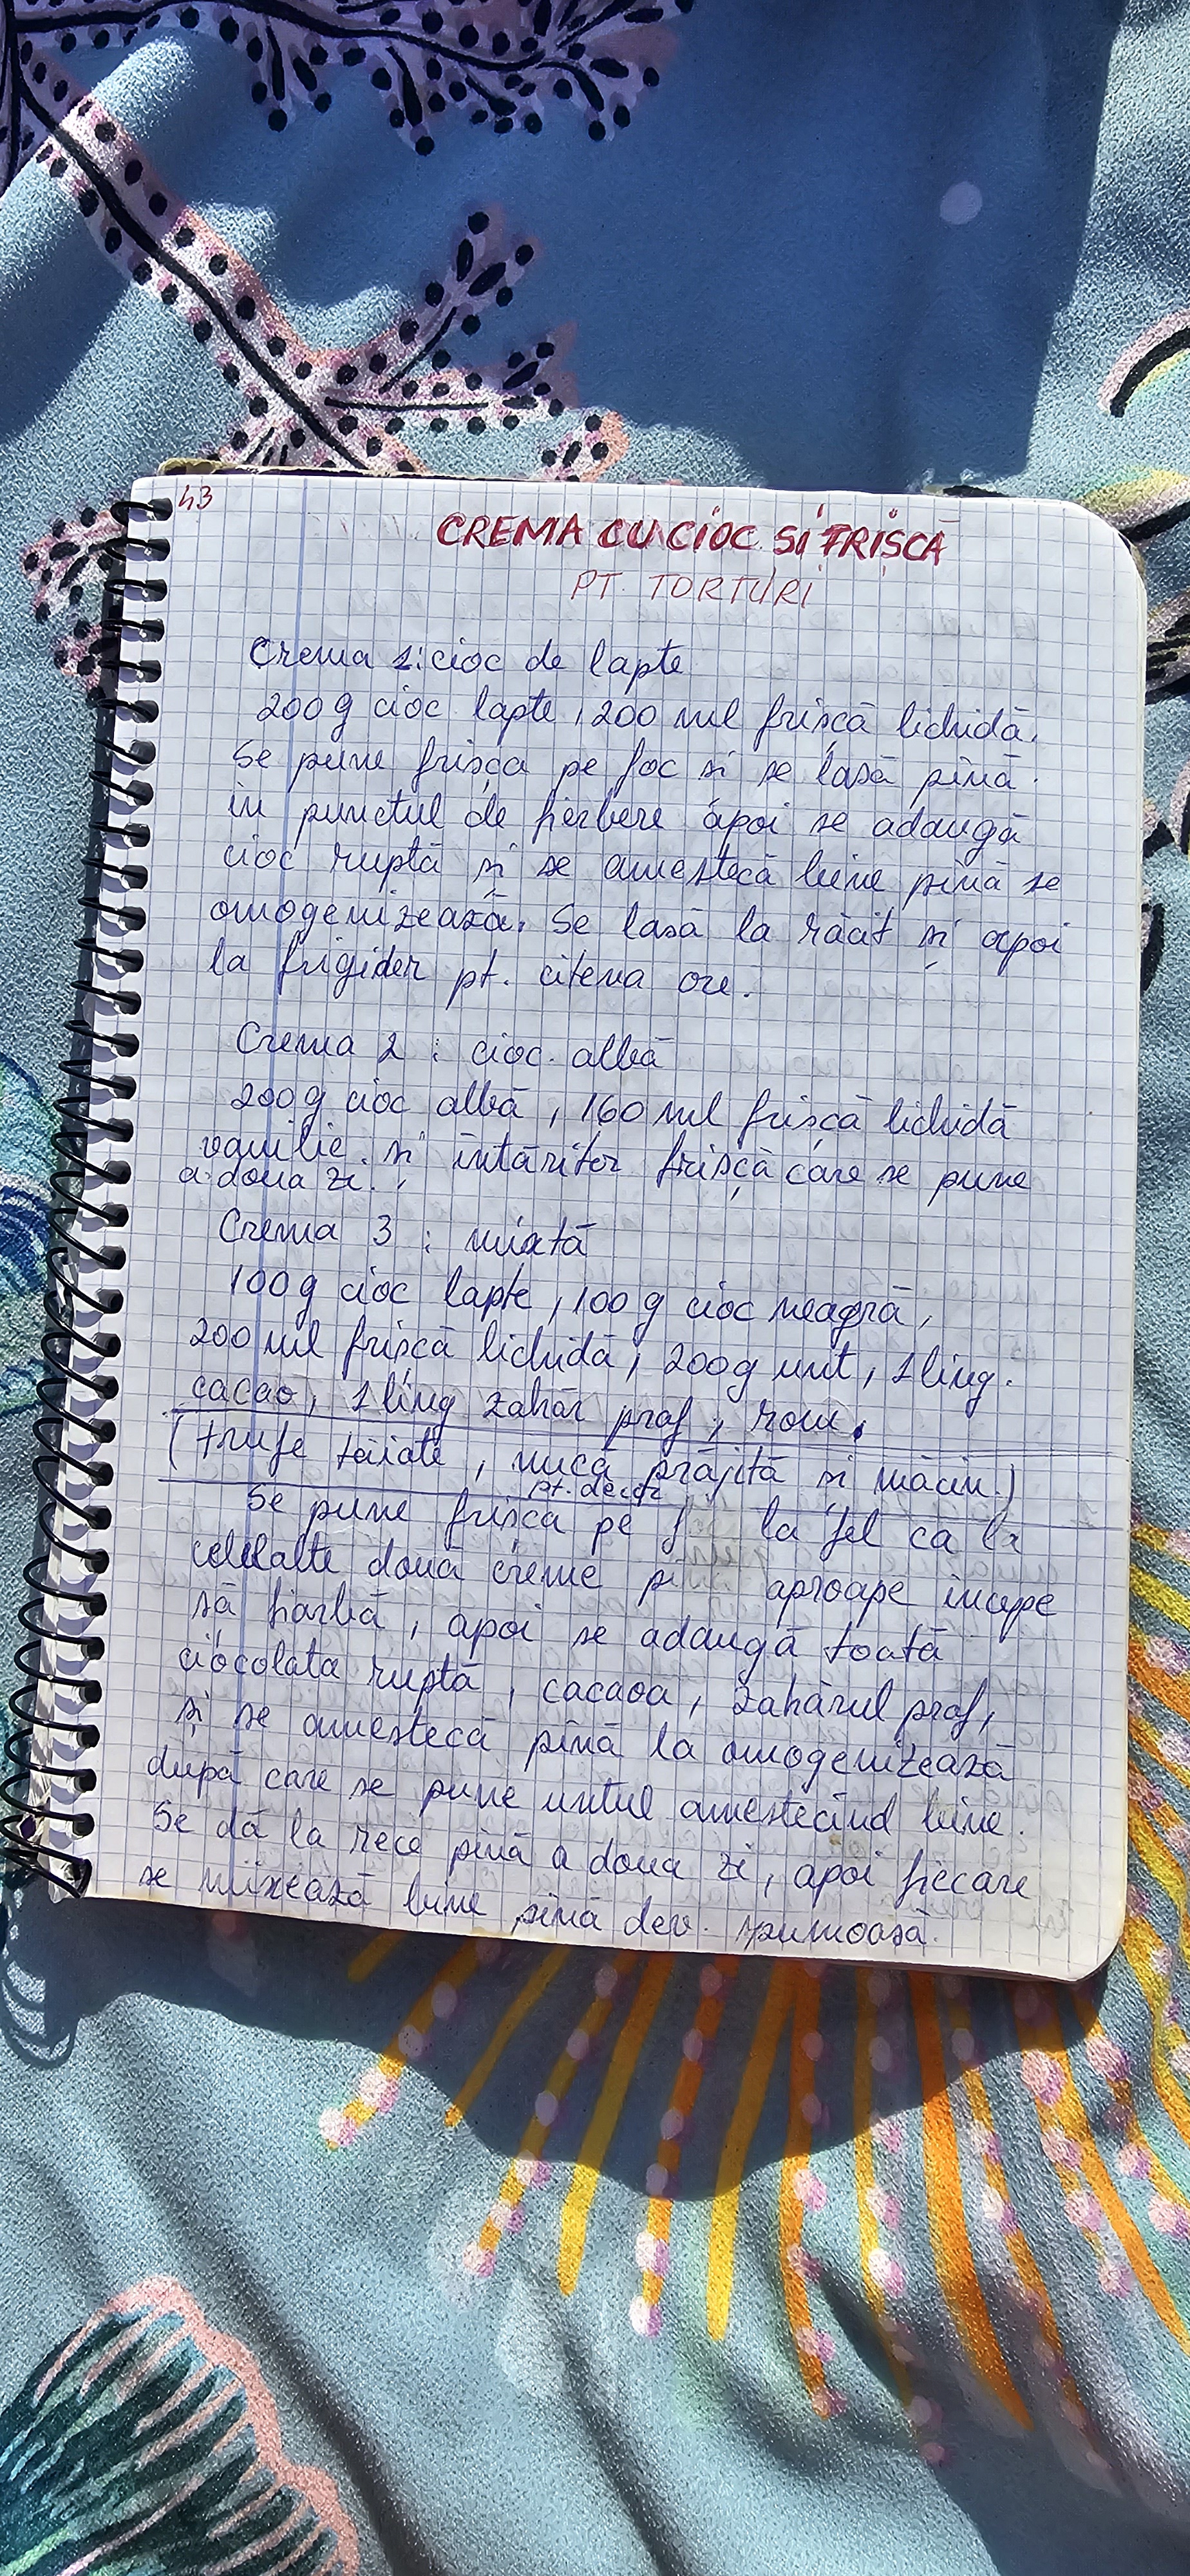 43
CREMA CU CIOC. SI FRIȘCĂ
PT. TORTURI
Crema 1: cioc de lapte
200g cioc lapte, 200 ml frișcă lichidă.
Se pune frișca pe foc și se lasă pînă
în punctul de fierbere apoi se adaugă
cioc ruptă și se amestecă bine pînă se
omogenizează. Se lasă la răcit și apoi
la frigider pt. cîteva ore.
Crema 2 : cioc. albă
200g cioc albă, 160 ml frișcă lichidă
vanilie. și întăritor frișcă care se pune
a doua zi.
Crema 3 : mixtă
100g cioc lapte, 100g cioc neagră,
200 ml frișcă lichidă, 200g unt, 1 ling.
cacao, 1 ling zahăr praf, rom.
(trufe tăiate, nucă prăjită și măcin.)
pt. decor
Se pune frișca pe la fel ca la
celelalte două creme aproape începe
să fiarbă, apoi se adaugă toată
ciocolata ruptă, cacaoa, zahărul praf,
și se amestecă pînă la omogenizează
după care se pune untul amestecînd bine.
Se dă la rece pînă a doua zi, apoi fiecare
se mixează bine pînă dev. spumoasă.